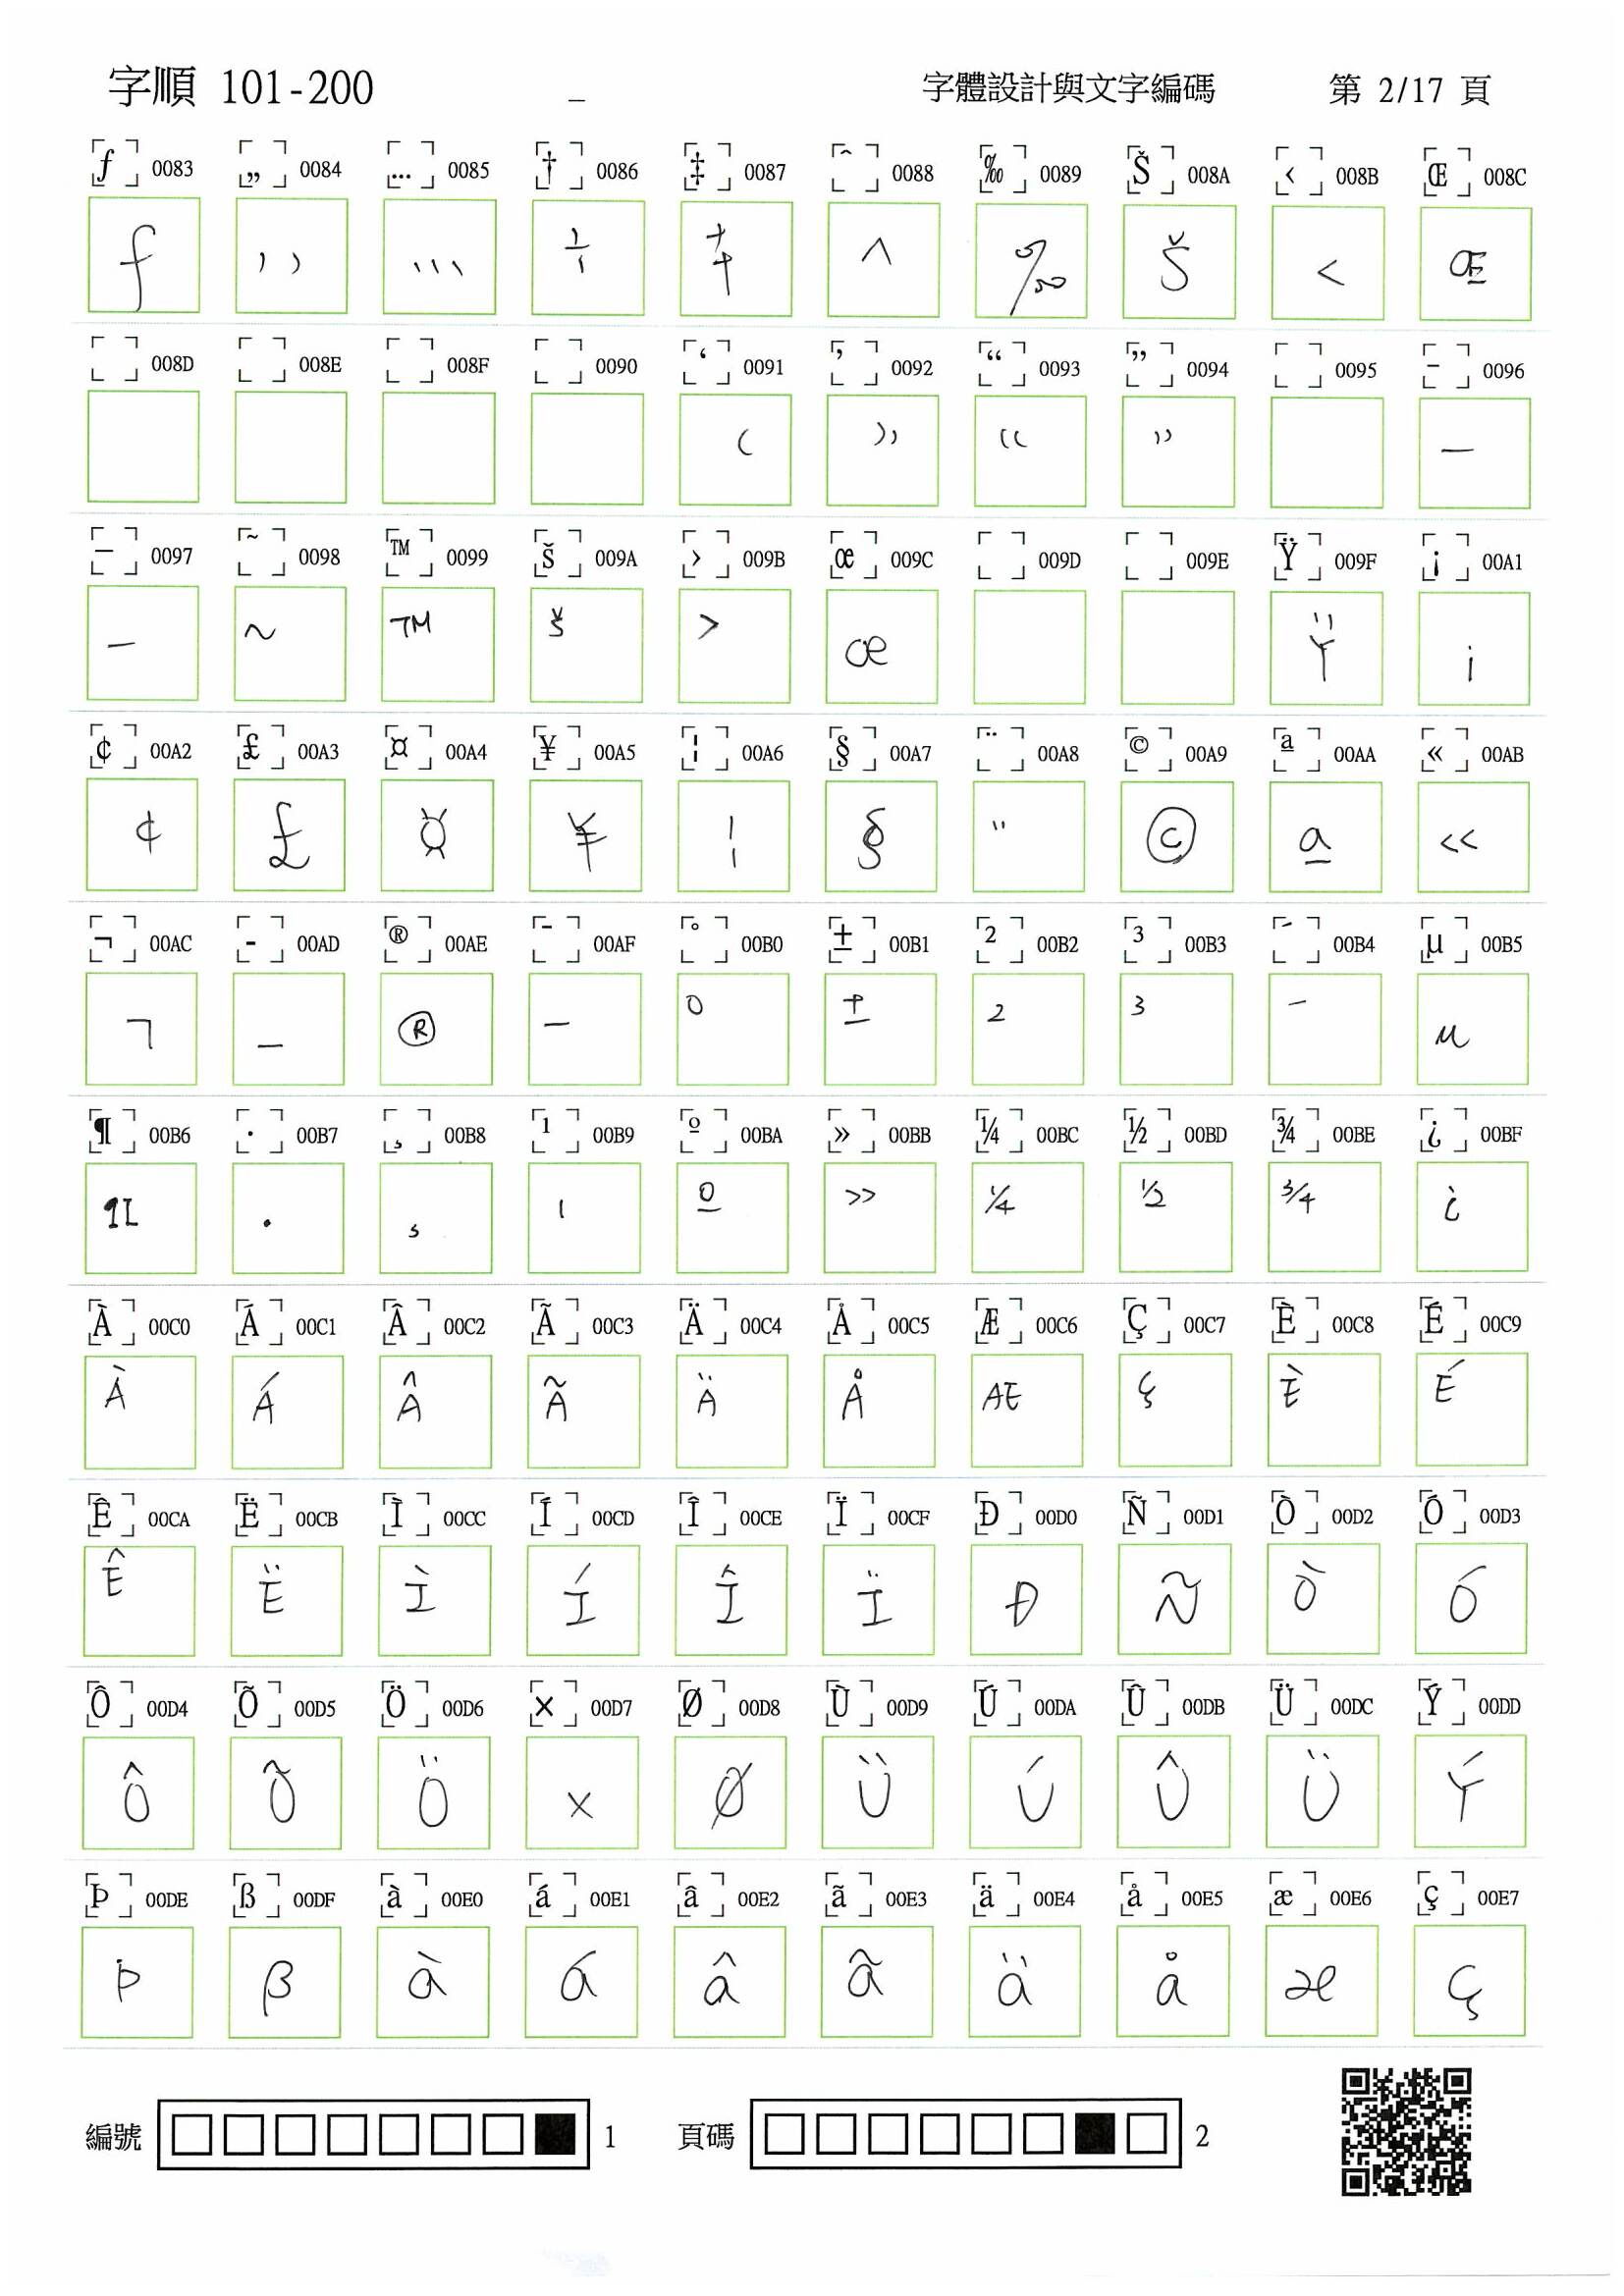 字順 101-200 _ 字體設計與文字編碼 第 2/17 頁
ƒ 0083 „ 0084 … 0085 † 0086 ‡ 0087 ˆ 0088 ‰ 0089 Š 008A ‹ 008B Œ 008C
f ,, ... † ‡ ^ ‰ Š < Œ
008D 008E 008F 0090 ‘ 0091 ’ 0092 “ 0093 ” 0094 0095 – 0096
‘ ” “ ” –
— 0097 ˜ 0098 ™ 0099 š 009A › 009B œ 009C 009D 009E Ÿ 009F ¡ 00A1
— ~ ™ š > œ Ÿ ¡
¢ 00A2 £ 00A3 ¤ 00A4 ¥ 00A5 ¦ 00A6 § 00A7 ¨ 00A8 © 00A9 ª 00AA « 00AB
¢ £ ¤ ¥ ¦ § ¨ © ª «
¬ 00AC - 00AD ® 00AE ¯ 00AF ° 00B0 ± 00B1 ² 00B2 ³ 00B3 ´ 00B4 µ 00B5
¬ – ® ¯ ° ± ² ³ ´ µ
¶ 00B6 · 00B7 ¸ 00B8 ¹ 00B9 º 00BA » 00BB ¼ 00BC ½ 00BD ¾ 00BE ¿ 00BF
¶ · ¸ ¹ º » ¼ ½ ¾ ¿
À 00C0 Á 00C1 Â 00C2 Ã 00C3 Ä 00C4 Å 00C5 Æ 00C6 Ç 00C7 È 00C8 É 00C9
À Á Â Ã Ä Å Æ Ç È É
Ê 00CA Ë 00CB Ì 00CC Í 00CD Î 00CE Ï 00CF Ð 00D0 Ñ 00D1 Ò 00D2 Ó 00D3
Ê Ë Ì Í Î Ï Ð Ñ Ò Ó
Ô 00D4 Õ 00D5 Ö 00D6 × 00D7 Ø 00D8 Ù 00D9 Ú 00DA Û 00DB Ü 00DC Ý 00DD
Ô Õ Ö × Ø Ȕ Ú Û Ü Ý
Þ 00DE ß 00DF à 00E0 á 00E1 â 00E2 ã 00E3 ä 00E4 å 00E5 æ 00E6 ç 00E7
Þ ß à á â ã ä å æ ç
編號 1 頁碼 2